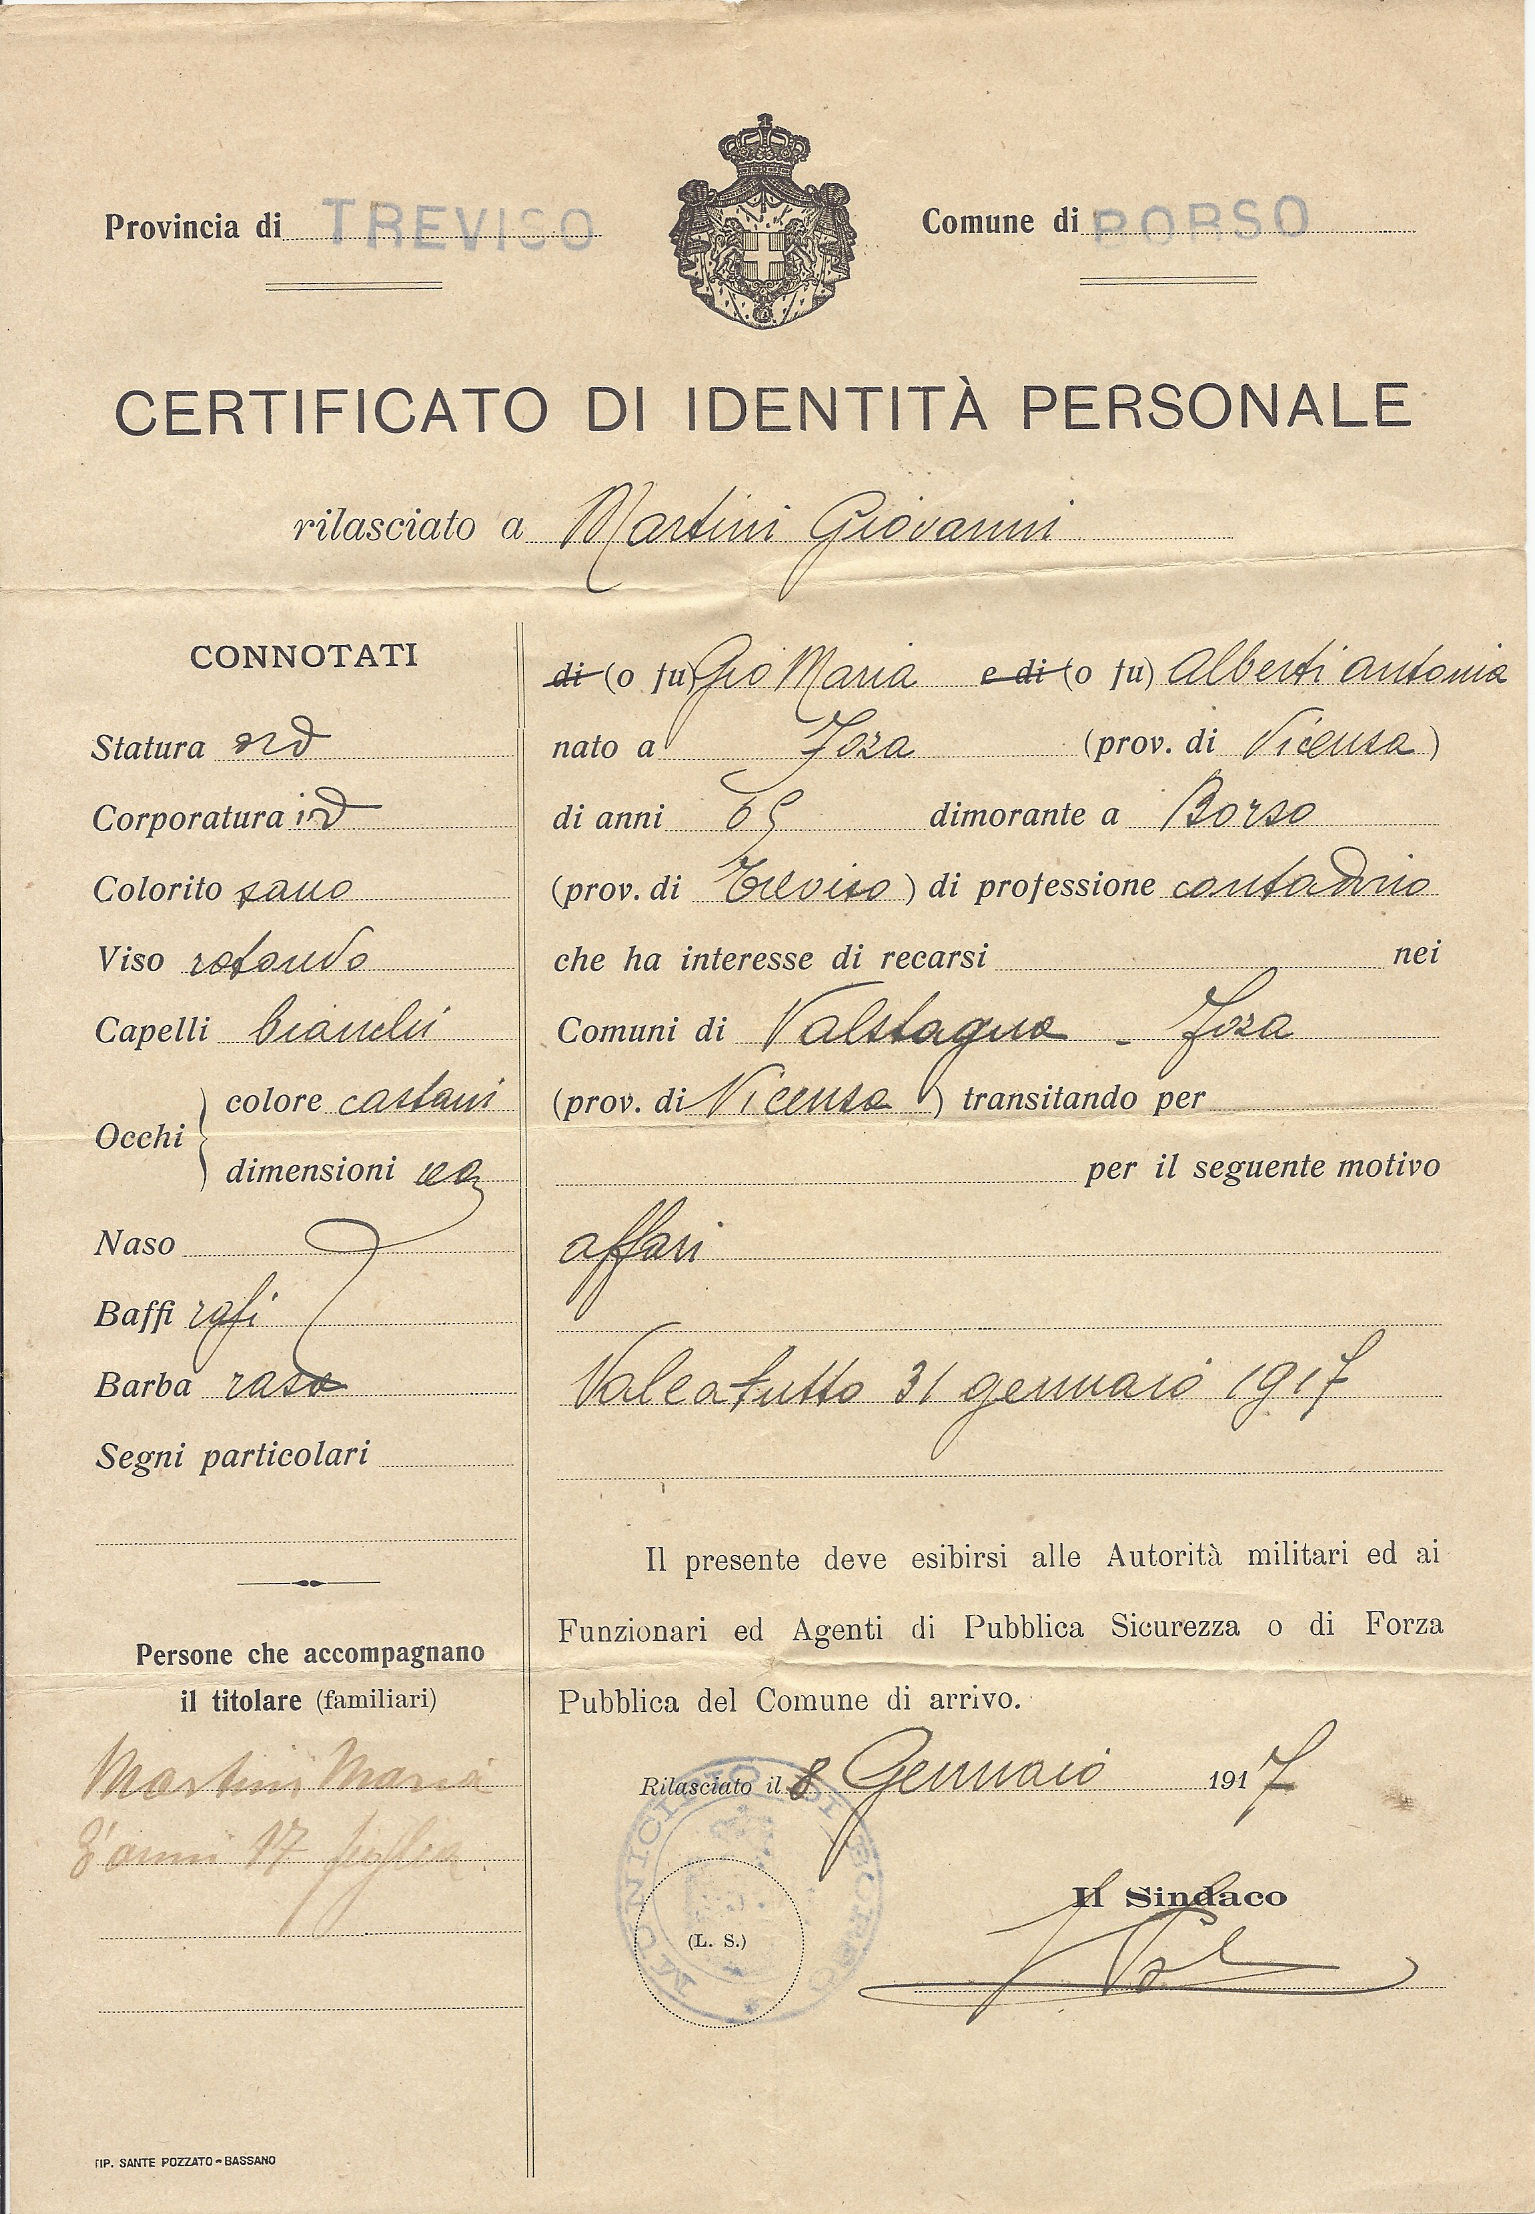 Provincia di TREVISO
Comune di BORSO
CERTIFICATO DI IDENTITÀ PERSONALE
rilasciato a Martini Giovanni
CONNOTATI
Statura ord
Corporatura id
Colorito sano
Viso rotondo
Capelli bianchi
Occhi
colore castani
dimensioni reg
Naso
Baffi rasi
Barba rasa
Segni particolari
Persone che accompagnano
il titolare (familiari)
Martini Maria
d'anni 17 figlia
di (o fu) Gio Maria e di (o fu) Alberti Antonia
nato a Foza (prov. di Vicenza)
di anni 65 dimorante a Borso
(prov. di Treviso) di professione contadino
che ha interesse di recarsi nei
Comuni di Valstagna - Foza
(prov. di Vicenza) transitando per
per il seguente motivo
affari
Vale a tutto 31 gennaio 1917
Il presente deve esibirsi alle Autorità militari ed ai
Funzionari ed Agenti di Pubblica Sicurezza o di Forza
Pubblica del Comune di arrivo.
Rilasciato il 8 Gennaio 1917
MUNICIPIO DI BORSO
(L. S.)
Il Sindaco
TIP. SANTE POZZATO - BASSANO